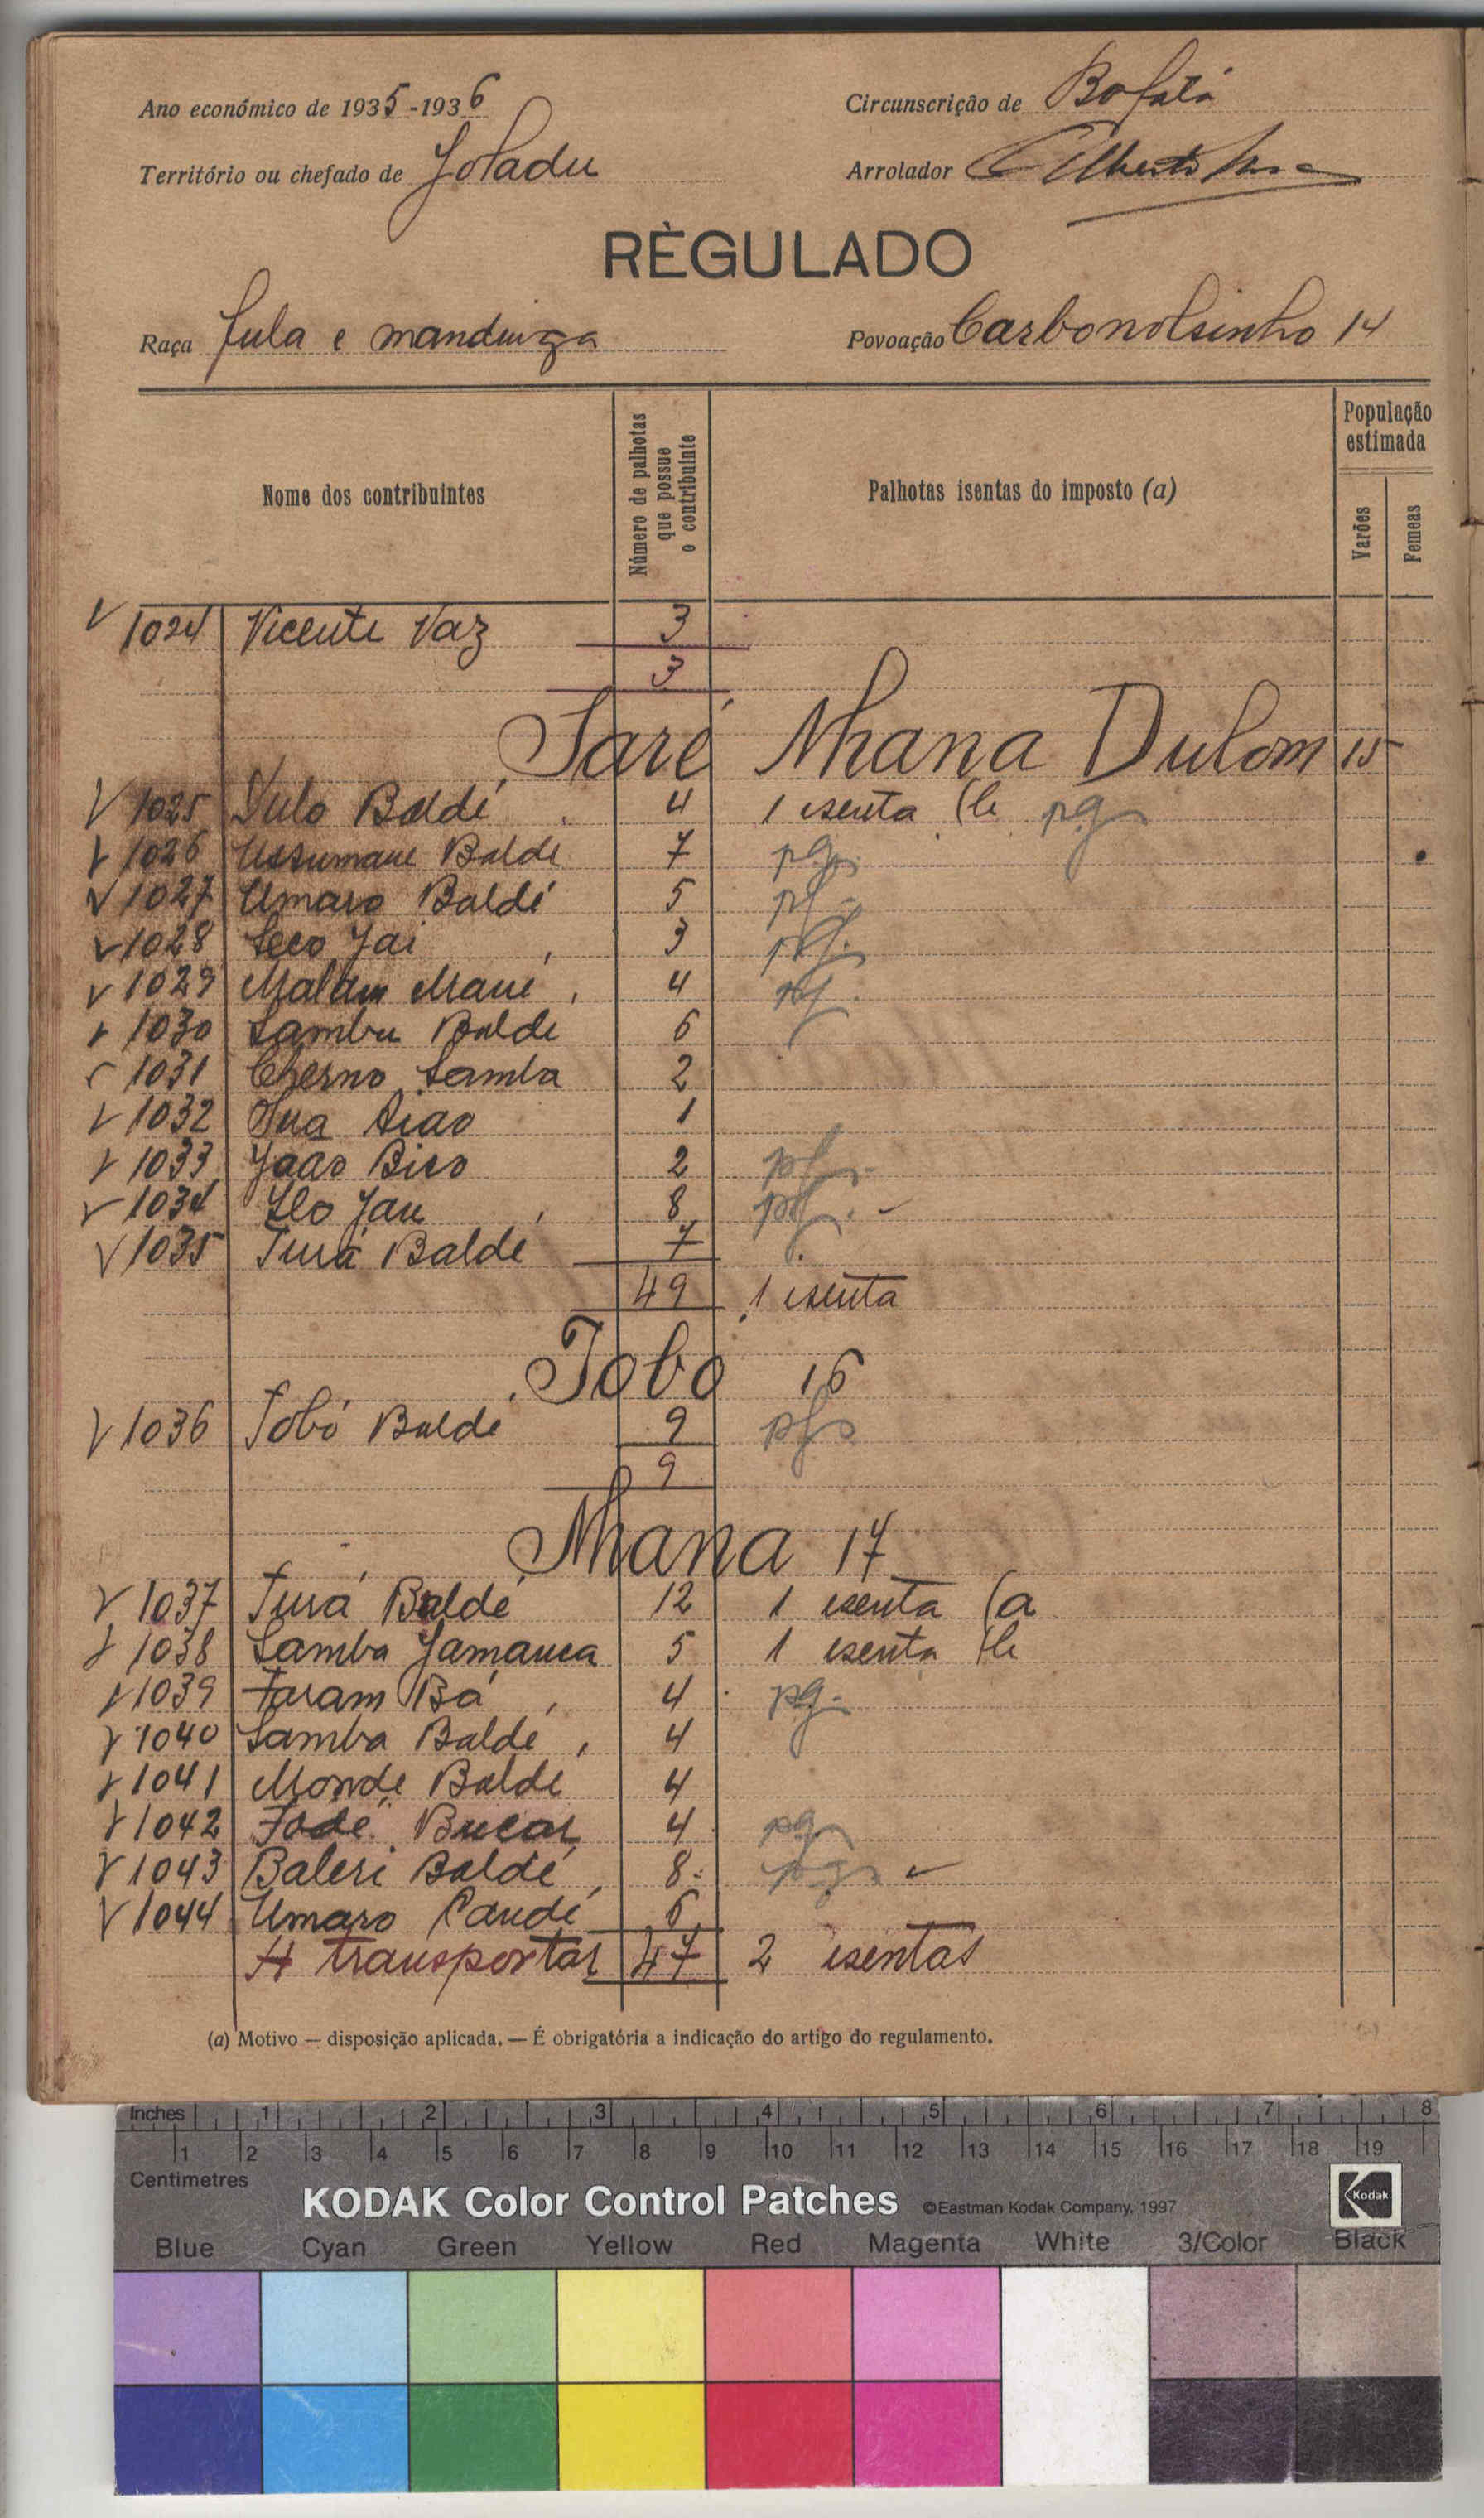 Ano económico de 1935-1936
Circunscrição de Bafatá
Território ou chefado de Joladu
Arrolador Alberto
RÈGULADO
Raça fula e mandinga
Povoação Carbonolsinho 14
Nome dos contribuintes
Número de palhotas que possue o contribuinte
Palhotas isentas do imposto (a)
População estimada
Varões
Femeas
1024 Vicente Vaz 3
3
Saré Nhana Dulom 15
1025 Iulo Baldé 4 1 isenta (b pg
1026 Ussumane Balde 7 pg.
1027 Umaro Baldé 5 pg.
1028 Seco Jai 3 pg.
1029 Malam Mané 4 pg.
1030 Sambu Balde 6
1031 Cherno Samba 2
1032 1
1033 Joao Bico 2 pg.
1034 Ilo Jau 8 pg.
1035 Turá Baldé 7
49 1 isenta
Tobo 16
1036 Tobó Balde 9 pg
9
Nhana 17
1037 Turá Baldé 12 1 isenta (a
1038 Samba Jamanca 5 1 isenta (b
1039 Faram Bá 4 pg.
1040 Samba Baldé 4
1041 Monde Baldé 4
1042 Fodé Bucar 4 pg
1043 Baleri Baldé 8 pg
1044 Umaro Candé 6
A transportar 47 2 isentas
(a) Motivo — disposição aplicada. — É obrigatória a indicação do artigo do regulamento.
Inches 1 2 3 4 5 6 7 8
1 2 3 4 5 6 7 8 9 10 11 12 13 14 15 16 17 18 19
Centimetres
KODAK Color Control Patches ©Eastman Kodak Company, 1997 Kodak
Blue Cyan Green Yellow Red Magenta White 3/Color Black